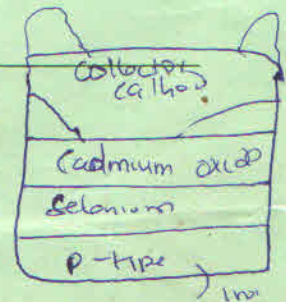 Collector
Cathod
Cadmium oxide
Selenium
P-type